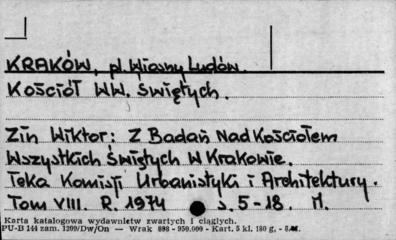 KRAKÓW, pl. Wiosny Ludów.
Kościół WW. Świętych.
Zin Wiktor: Z Badań Nad Kościołem
Wszystkich Świętych W Krakowie.
Teka Komisji Urbanistyki i Architektury.
Tom VIII. R. 1974 s. 5-18. M.
Karta katalogowa wydawnictw zwartych i ciągłych.
PU-B 144 zam. 1209/Dw/On — Wrak 898 - 950.000 - Kart. 5 kl. 180 g,